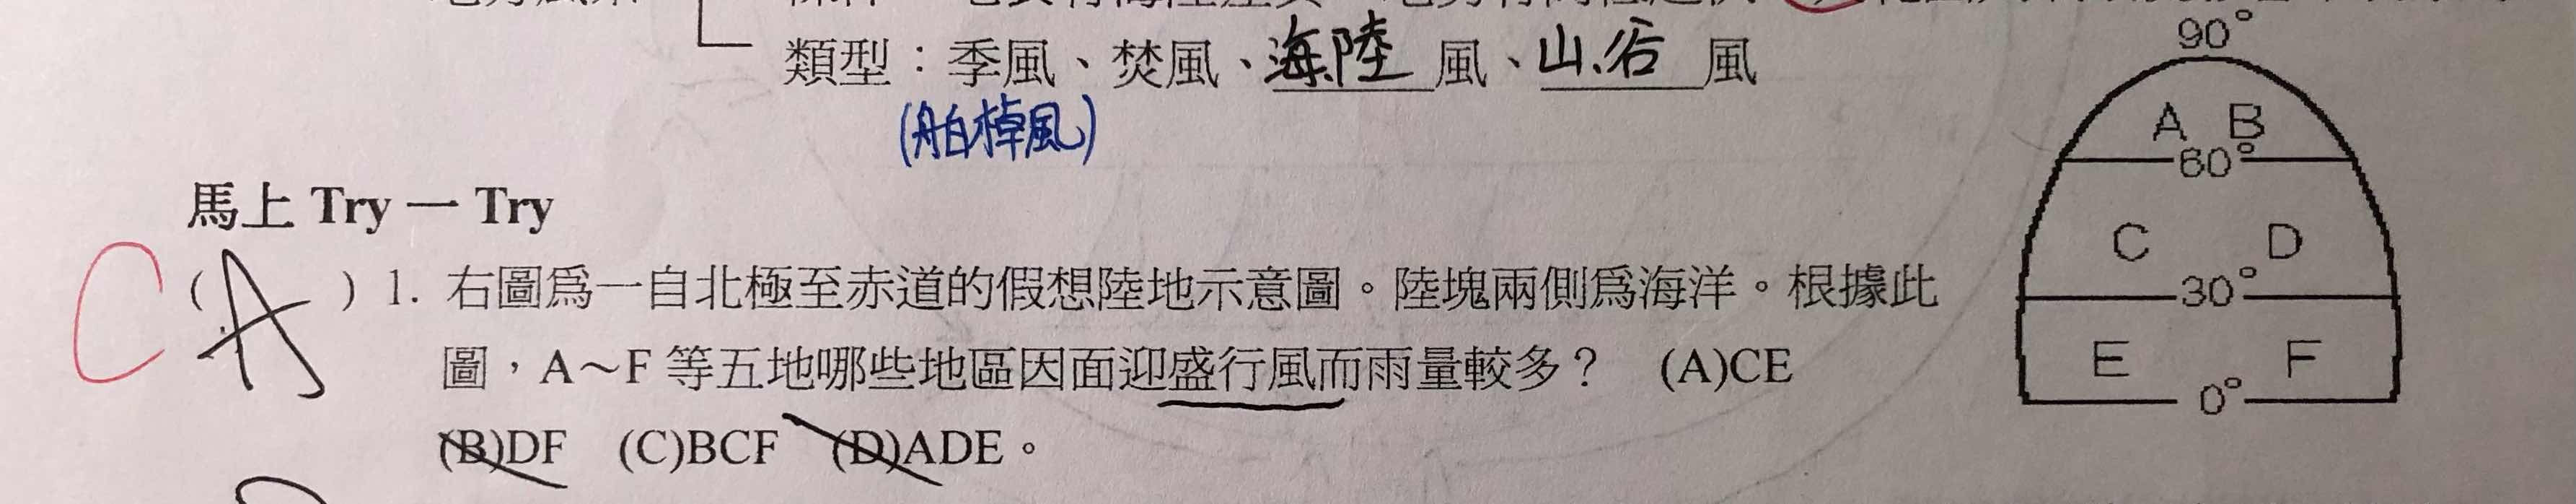 類型：季風、焚風、海陸風、山谷風
(舶棹風)
馬上 Try 一 Try
C
(A) 1. 右圖為一自北極至赤道的假想陸地示意圖。陸塊兩側為海洋。根據此
圖，A～F 等五地哪些地區因面迎盛行風而雨量較多？ (A)CE
(B)DF (C)BCF (D)ADE。
90°
A B
60°
C D
30°
E F
0°